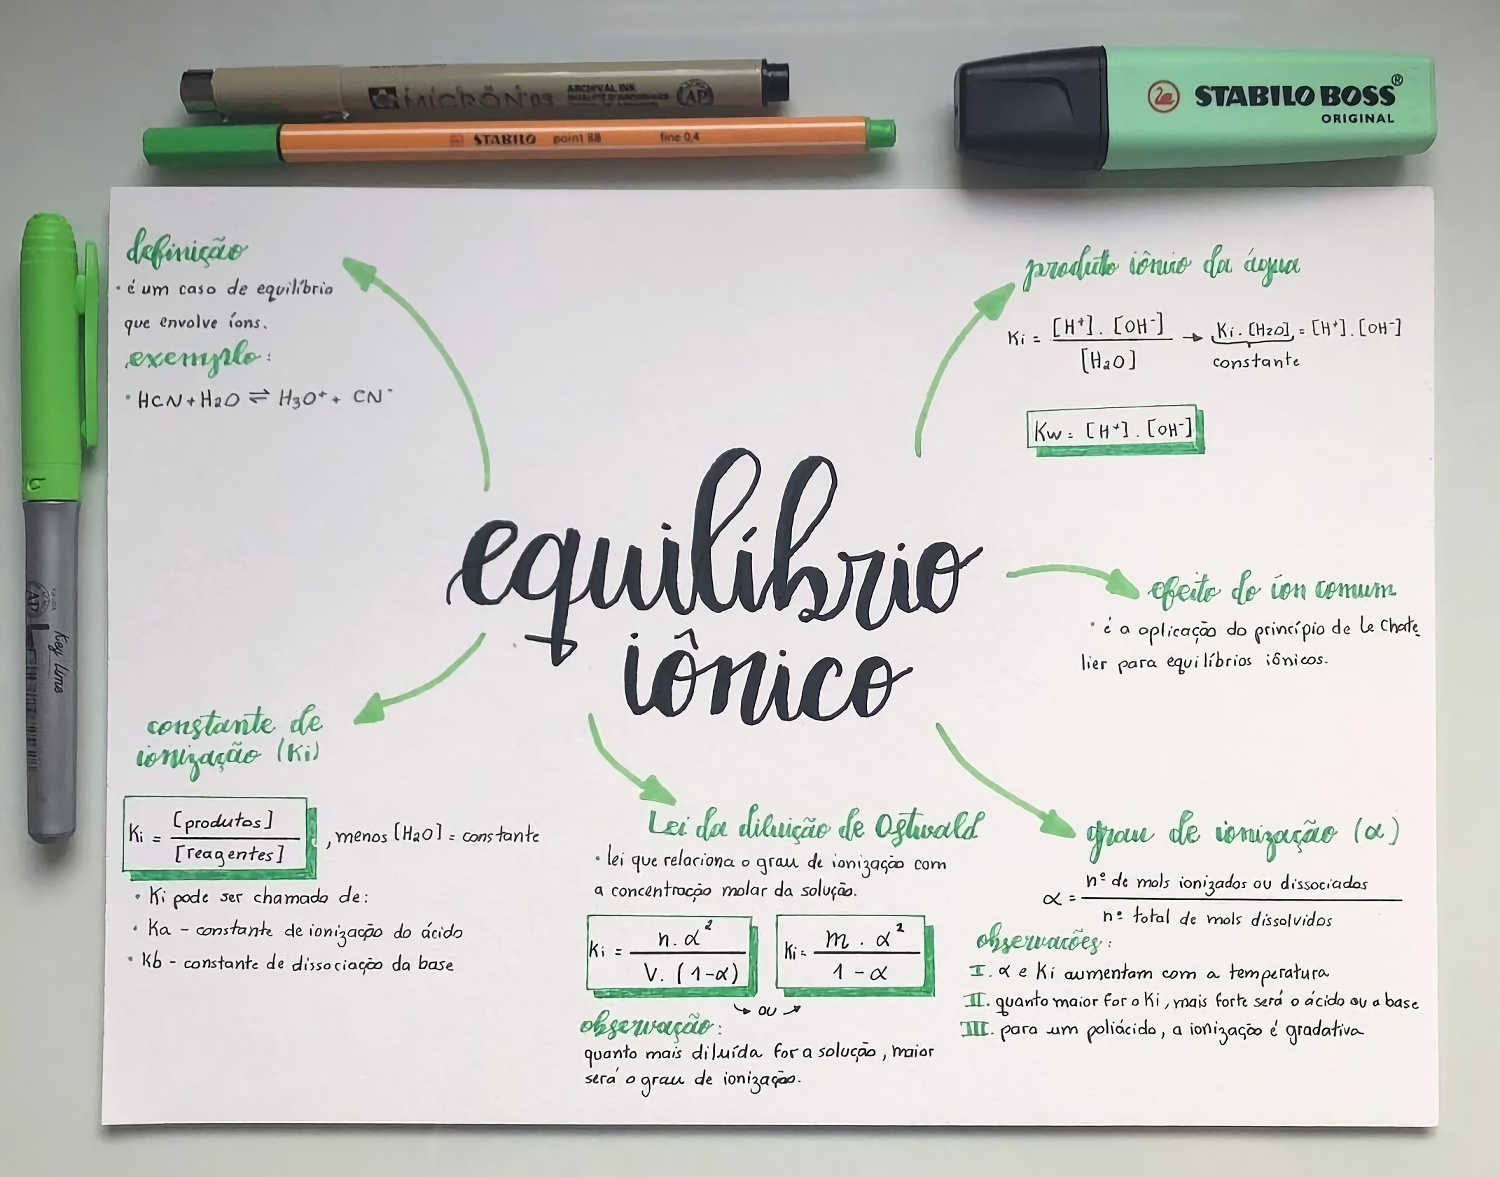 MICRON 03 ARCHIVAL INK AP
STABILO point 88 fine 0,4
STABILO BOSS®
ORIGINAL
AP
Key Lime
definição
· é um caso de equilíbrio
que envolve íons.
exemplo:
· HCN + H₂O ⇌ H₃O⁺ + CN⁻
produto iônico da água
Ki = [H⁺] . [OH⁻] / [H₂O] → Ki . [H₂O] = [H⁺] . [OH⁻]
constante
Kw = [H⁺] . [OH⁻]
equilíbrio
iônico
efeito do íon comum
· é a aplicação do princípio de Le Chate
lier para equilíbrios iônicos.
constante de
ionização (Ki)
Ki = [produtos] / [reagentes] , menos [H₂O] = constante
· Ki pode ser chamado de:
· Ka - constante de ionização do ácido
· Kb - constante de dissociação da base
Lei da diluição de Ostwald
· lei que relaciona o grau de ionização com
a concentração molar da solução.
Ki = n . α² / V . (1-α)
Ki = m . α² / 1 - α
→ ou →
observação:
quanto mais diluída for a solução, maior
será o grau de ionização.
grau de ionização (α)
α = nº de mols ionizados ou dissociados / nº total de mols dissolvidos
observações:
I. α e Ki aumentam com a temperatura
II. quanto maior for o Ki, mais forte será o ácido ou a base
III. para um poliácido, a ionização é gradativa